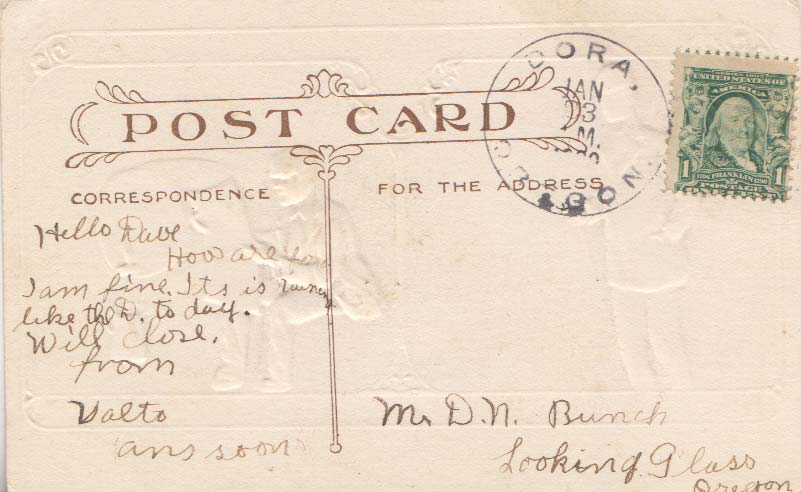 POST CARD
CORRESPONDENCE
FOR THE ADDRESS
DORA,
OREGON.
JAN
3
M.
UNITED STATES OF
AMERICA
1
FRANKLIN
1
POSTAGE
Hello Dave
How are you
I am fine. Its is raining
like the D. to day.
Will close.
from
Valto
ans soon
Mr D. N. Bunch
Looking Glass
Oregon